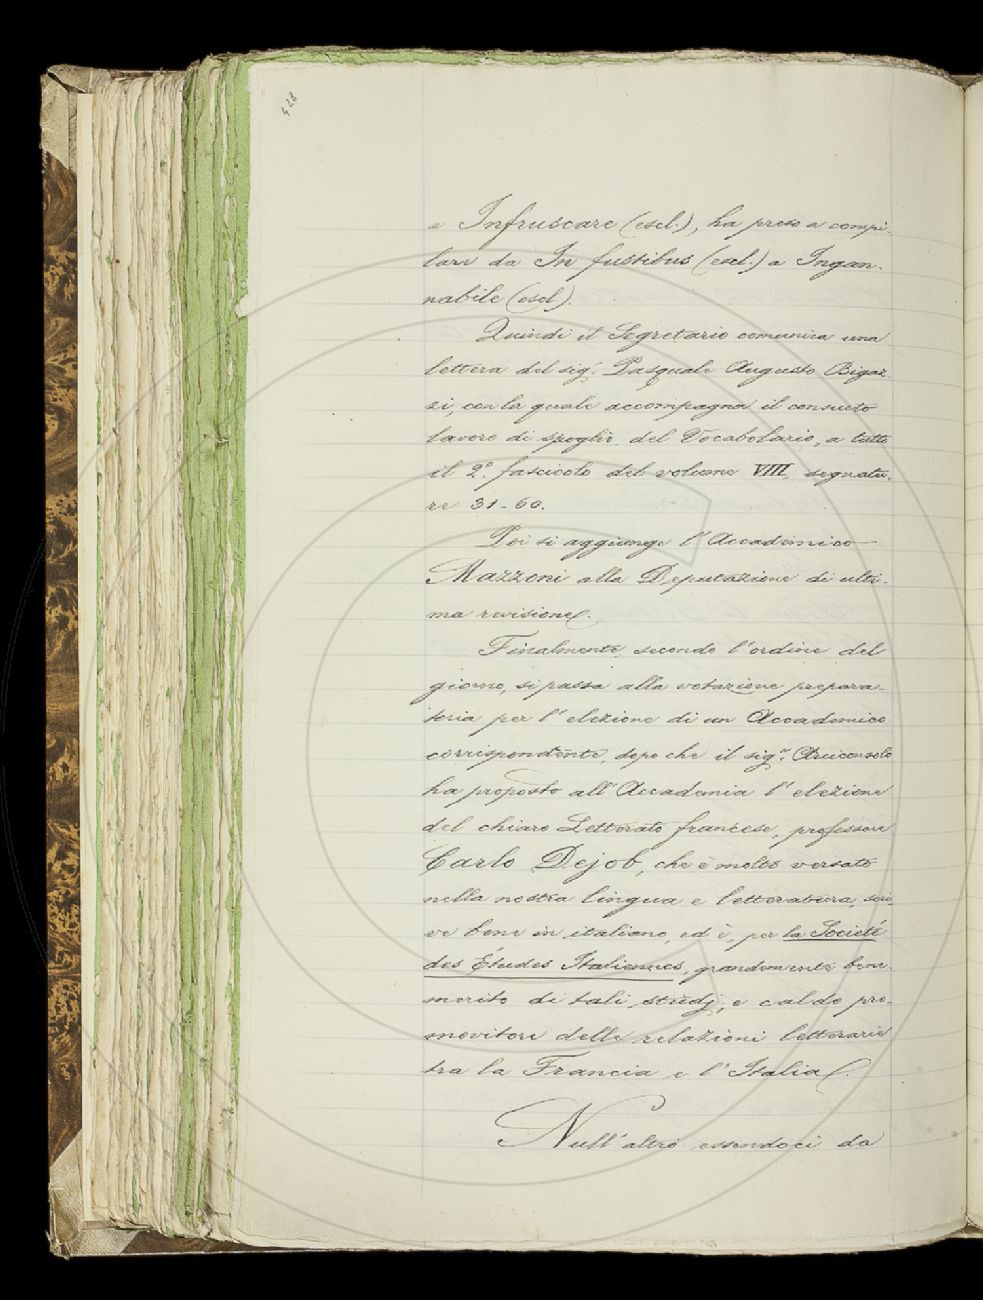 428
a Infruscare (escl.), ha preso a compi-
lare da In fustibus (escl.) a Ingan-
nabile (escl.).
Quindi il Segretario comunica una
lettera del sig.r Pasquale Augusto Bigaz-
zi, con la quale accompagna il consueto
lavoro di spoglio del Vocabolario, a tutto
il 2.° fascicolo del volume VIII, segnatu-
re 31-60.
Poi si aggiunge l'Accademico
Mazzoni alla Deputazione di ulti-
ma revisione.
Finalmente, secondo l'ordine del
giorno, si passa alla votazione prepara-
toria per l'elezione di un Accademico
corrispondente, dopo che il sig.r Arciconsolo
ha proposto all'Accademia l'elezione
del chiaro Letterato francese, professore
Carlo Dejob, che è molto versato
nella nostra lingua e letteratura, scri-
ve bene in italiano, ed è, per la Société
des Études Italiennes, grandemente bene-
merito di tali studj, e caldo pro-
movitore delle relazioni letterarie
tra la Francia e l'Italia.
Null'altro essendoci da